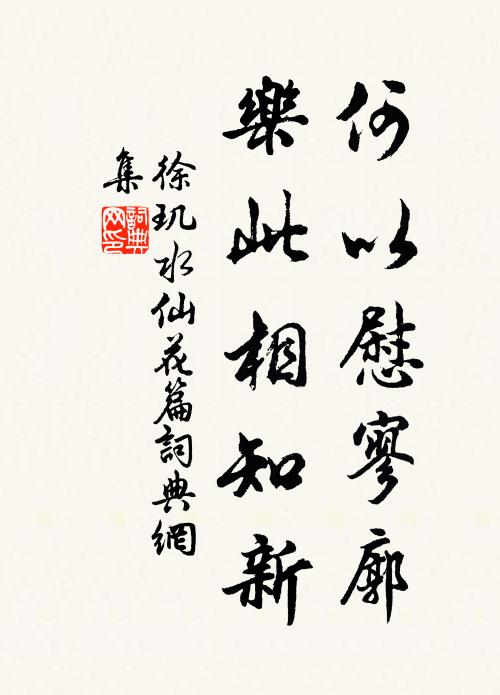 何以慰寥廓
樂此相知新
徐玑水仙花篇詞典網
集
詞典
网印